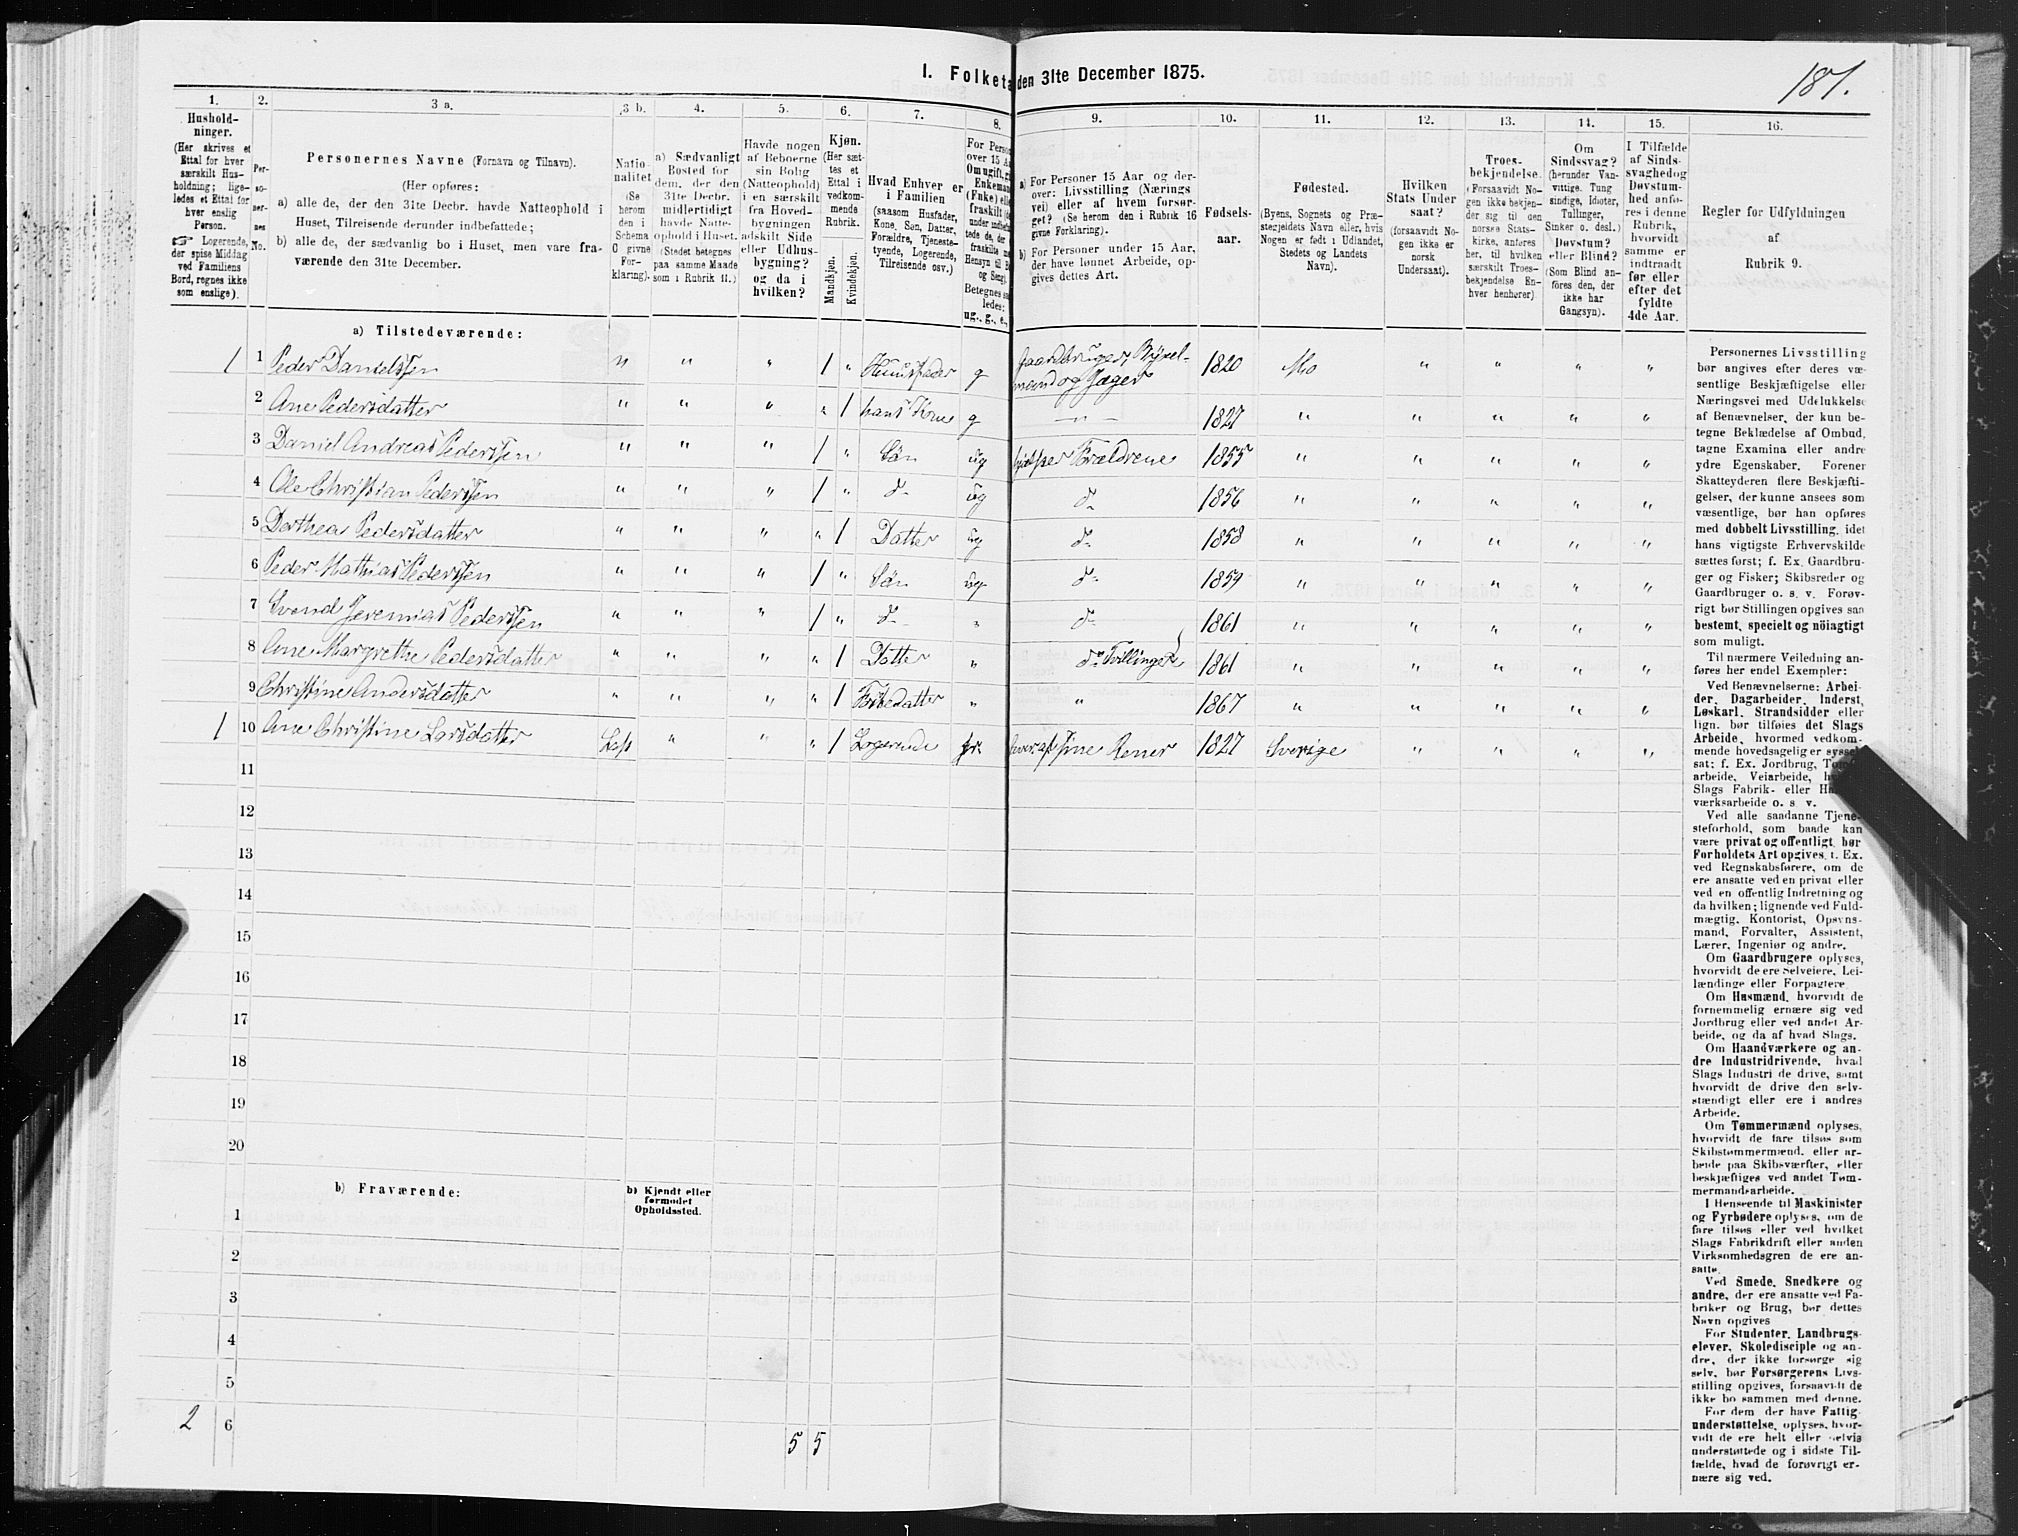 I. Folketæ den 31te December 1875.
181.
1. 2. 3 a. 3 b. 4. 5. 6. 7. 8. 9. 10. 11. 12. 13. 14. 15. 16.
Hushold-
ninger.
(Her skrives et
Ettal for hver
særskilt Hus-
holdning; lige-
ledes et Ettal for
hver enslig
Person.
☞ Logerende,
der spise Middag
ved Familiens
Bord, regnes ikke
som enslige).
Per-
so-
ner-
nes
No.
Personernes Navne (Fornavn og Tilnavn).
(Her opføres:
a) alle de, der den 31te Decbr. havde Natteophold i
Huset, Tilreisende derunder indbefattede;
b) alle de, der sædvanlig bo i Huset, men vare fra-
værende den 31te December.
Natio-
nalitet
(Se
herom
den i
Schema
C givne
For-
klaring).
a) Sædvanligt
Bosted for
dem, der den
31te Decbr.
midlertidigt
havde Natte-
ophold i Huset.
(Stedet betegnes
paa samme Maade
som i Rubrik 11.)
Havde nogen
af Beboerne
sin Bolig
(Natteophold)
i en særskilt
fra Hoved-
bygningen
adskilt Side
eller Udhus-
bygning?
og da i
hvilken?
Kjøn.
(Her sæt-
tes et
Ettal i
vedkom-
mende
Rubrik.
Mandkjøn.
Kvindekjøn.
Hvad Enhver er
i Familien
(saasom Husfader,
Kone, Søn, Datter,
Forældre, Tjeneste-
tyende, Logerende,
Tilreisende osv.)
For Person
over 15 Aa
Om ugift, gi
Enkeman
(Enke) elle
fraskilt
Betegnes sa
ledes:
ug., g., e.,
a) For Personer 15 Aar og der-
over: Livsstilling (Nærings
vei) eller af hvem forsør-
get? (Se herom den i Rubrik 16
givne Forklaring).
b) For Personer under 15 Aar,
der have lønnet Arbeide, op-
gives dettes Art.
Fødsels-
aar.
Fødested.
(Byens, Sognets og Præ-
stegjeldets Navn eller, hvis
Nogen er født i Udlandet,
Stedets og Landets
Navn).
Hvilken
Stats Under
saat?
(forsaavidt No-
gen ikke er
norsk
Undersaat).
Troes-
bekjendelse.
(Forsaavidt No-
gen ikke bekjen-
der sig til den
norske Stats-
kirke, anføres
her, til hvilken
særskilt Troes-
bekjendelse En-
hver henhører).
Om
Sindssvag?
(herunder Van-
vittige, Tung
sindige, Idioter,
Tullinger,
Sinker o. desl.)
Døvstum?
eller Blind?
(Som Blind an-
føres den, der
ikke har
Gangsyn).
I Tilfælde
af Sinds-
svaghed og
Døvstum-
hed anfø-
res i denne
Rubrik,
hvorvidt
samme er
indtraadt
før eller
efter det
fyldte
4de Aar.
Regler for Udfyldningen
af
Rubrik 9.
a) Tilstedeværende:
1 1 Peder Danielssen n " " 1 " Huusfader g Gaardbruger, Bøxel- 1820 Mo " " " "
mand og Jæger
2 Ane Pedersdatter " " " " 1 hans Kone g — " — 1827 " " " " "
3 Daniel Andreas Pederssen " " " 1 " Søn ug hjælper Forældrene 1855 " " " " "
4 Ole Christian Pederssen " " " 1 " d- ug d- 1856 " " " " "
5 Dorthea Pedersdatter " " " " 1 Datter ug d- 1858 " " " " "
6 Peder Mathias Pederssen " " " 1 " Søn ug d- 1859 " " " " "
7 Svend Jeremias Pederssen " " " 1 " d- " d- 1861 " " " " "
8 Ane Margrethe Pedersdatter " " " " 1 Datter " d- Tvillinger 1861 " " " " "
9 Christine Andersdatter " " " " 1 Fosterdatter " " 1867 " " " " "
1 10 Ane Christine Larsdatter Lap " " " 1 Logerende lever af sine Rener 1827 Sverige " " " "
11
12
13
14
15
16
17
18
19
20
b) Fraværende:
b) Kjendt eller
formodet
Opholdssted.
1
2
3
4
5
2 6
5 5
Personernes Livsstilling
bør angives efter deres væ-
sentlige Beskjæftigelse eller
Næringsvei med Udelukkelse
af Benævnelser, der kun be-
tegne Beklædelse af Ombud,
tagne Examina eller andre
ydre Egenskaber. Forener
Skatteyderen flere Beskjæfti-
gelser, der kunne ansees som
væsentlige, bør han opføres
med dobbelt Livsstilling, idet
hans vigtigste Erhvervskilde
sættes først; f. Ex. Gaardbru-
ger og Fisker; Skibsreder og
Gaardbruger o. s. v. Forøv-
rigt bør Stillingen opgives saa
bestemt, specielt og nöiagtigt
som muligt.
Til nærmere Veiledning an-
føres her endel Exempler:
Ved Benævnelserne: Arbei-
der, Dagarbeider, Inderst,
Løskarl, Strandsidder eller
lign. bør tilføies det Slags
Arbeide, hvormed vedkom-
mende hovedsagelig er syssel-
sat; f. Ex. Jordbrug, Tom
arbeide, Veiarbeide,
Slags Fabrik- eller Ha
værksarbeide o. s. v.
Ved alle saadanne Tjene-
steforhold, som baade kan
være privat og offentligt, bør
Forholdets Art opgives, t. Ex.
ved Regnskabsførere, om de
ere ansatte ved en privat eller
ved en offentlig Indretning og
da hvilken; lignende ved Fuld-
mægtig, Kontorist, Opsyns-
mand, Forvalter, Assistent,
Lærer, Ingeniør og andre.
Om Gaardbrugere oplyses,
hvorvidt de ere Selveiere, Lei-
lændinge eller Forpagtere.
Om Husmænd, hvorvidt de
fornemmelig ernære sig ved
Jordbrug eller ved andet Ar-
beide, og da af hvad Slags.
Om Haandværkere og an-
dre Industridrivende, hvad
Slags Industri de drive, samt
hvorvidt de drive den selv-
stændigt eller ere i andres
Arbeide.
Om Tømmermænd oplyses,
hvorvidt de fare tilsøs som
Skibstømmermænd, eller ar-
beide paa Skibsværfter, eller
beskjæftiges ved andet Tøm-
mermandsarbeide.
I Henseende til Maskinister
og Fyrbødere oplyses, om de
fare tilsøs eller ved hvilket
Slags Fabrikdrift eller anden
Virksomhedsgren de ere an-
satte.
Ved Smede, Snedkere og
andre, der ere ansatte ved Fa-
briker og Brug, bør dettes
Navn opgives
For Studenter, Landbrugs-
elever, Skoledisciple og an-
dre, der ikke forsørge sig
selv, bør Forsørgerens Livs-
stilling opgives, forsaavidt de
ikke bo sammen med denne.
For dem, der have Fattig-
understøttelse, oplyses, hvor-
vidt de ere helt eller delvis
understøttede og i sidste Til-
fælde, hvad de forøvrigt er-
nære sig ved.